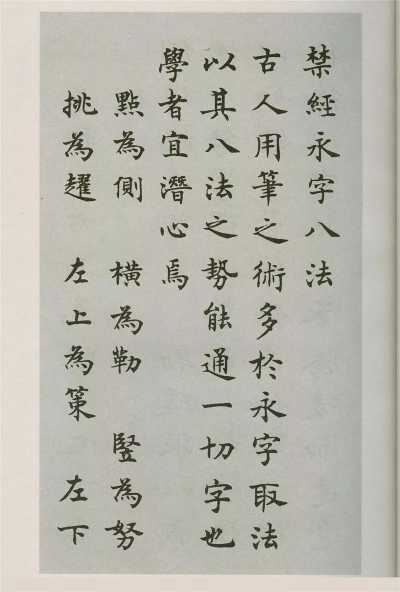 禁經永字八法
古人用筆之術多於永字取法
以其八法之勢能通一切字也
學者宜潛心焉
點為側 橫為勒 竪為努
挑為趯 左上為策 左下